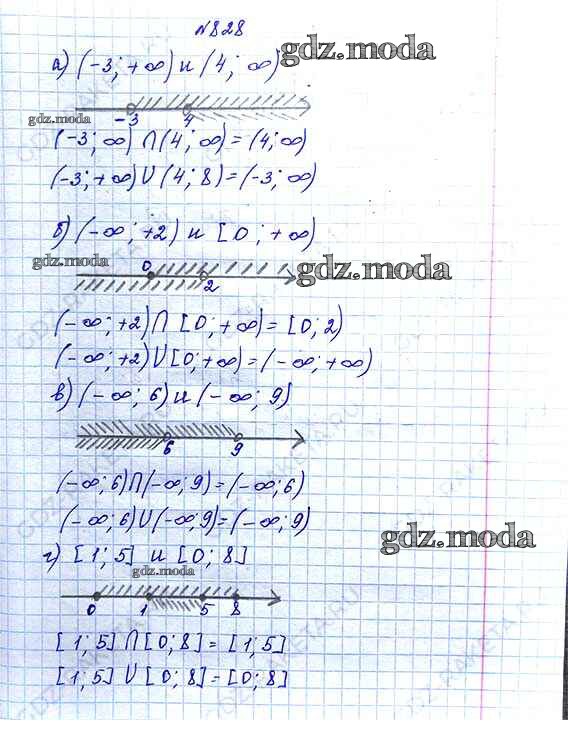 №828
а) (-3; +∞) и (4; ∞)
gdz.moda
-3 4
gdz.moda
(-3; ∞) ∩ (4; ∞) = (4; ∞)
(-3; +∞) U (4; 8) = (-3; ∞)
б) (-∞; +2) и [0; +∞)
gdz.moda
0 2
gdz.moda
(-∞; +2) ∩ [0; +∞) = [0; 2)
(-∞; +2) U [0; +∞) = (-∞; +∞)
в) (-∞; 6) и (-∞; 9)
6 9
(-∞; 6) ∩ (-∞; 9) = (-∞; 6)
(-∞; 6) U (-∞; 9) = (-∞; 9)
gdz.moda
г) [1; 5] и [0; 8]
gdz.moda
0 1 5 8
[1; 5] ∩ [0; 8] = [1; 5]
[1; 5] U [0; 8] = [0; 8]